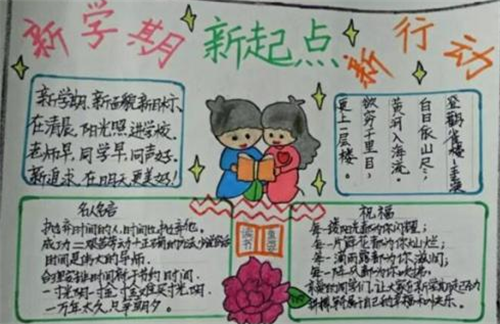 新学期 新起点 新行动
新学期、新面貌、新目标、
在清晨,阳光照进学校,
老师早,同学早,同声好。
新追求,在明天更美好!
登鹳雀楼-王之涣
白日依山尽,
黄河入海流。
欲穷千里目,
更上一层楼。
名人名言
抛弃时间的人,时间也抛弃他。
成功=艰苦劳动+正确的方法+少说空话
时间是伟大的导师。
合理安排时间就等于节约时间.
一寸光阴一寸金,寸金难买寸光阴.
一万年太久,只争朝夕。
读书
祝福
每一缕阳光都为你闪耀;
每一片鲜花都为你灿烂;
每一滴雨露都为你滋润;
每一阵